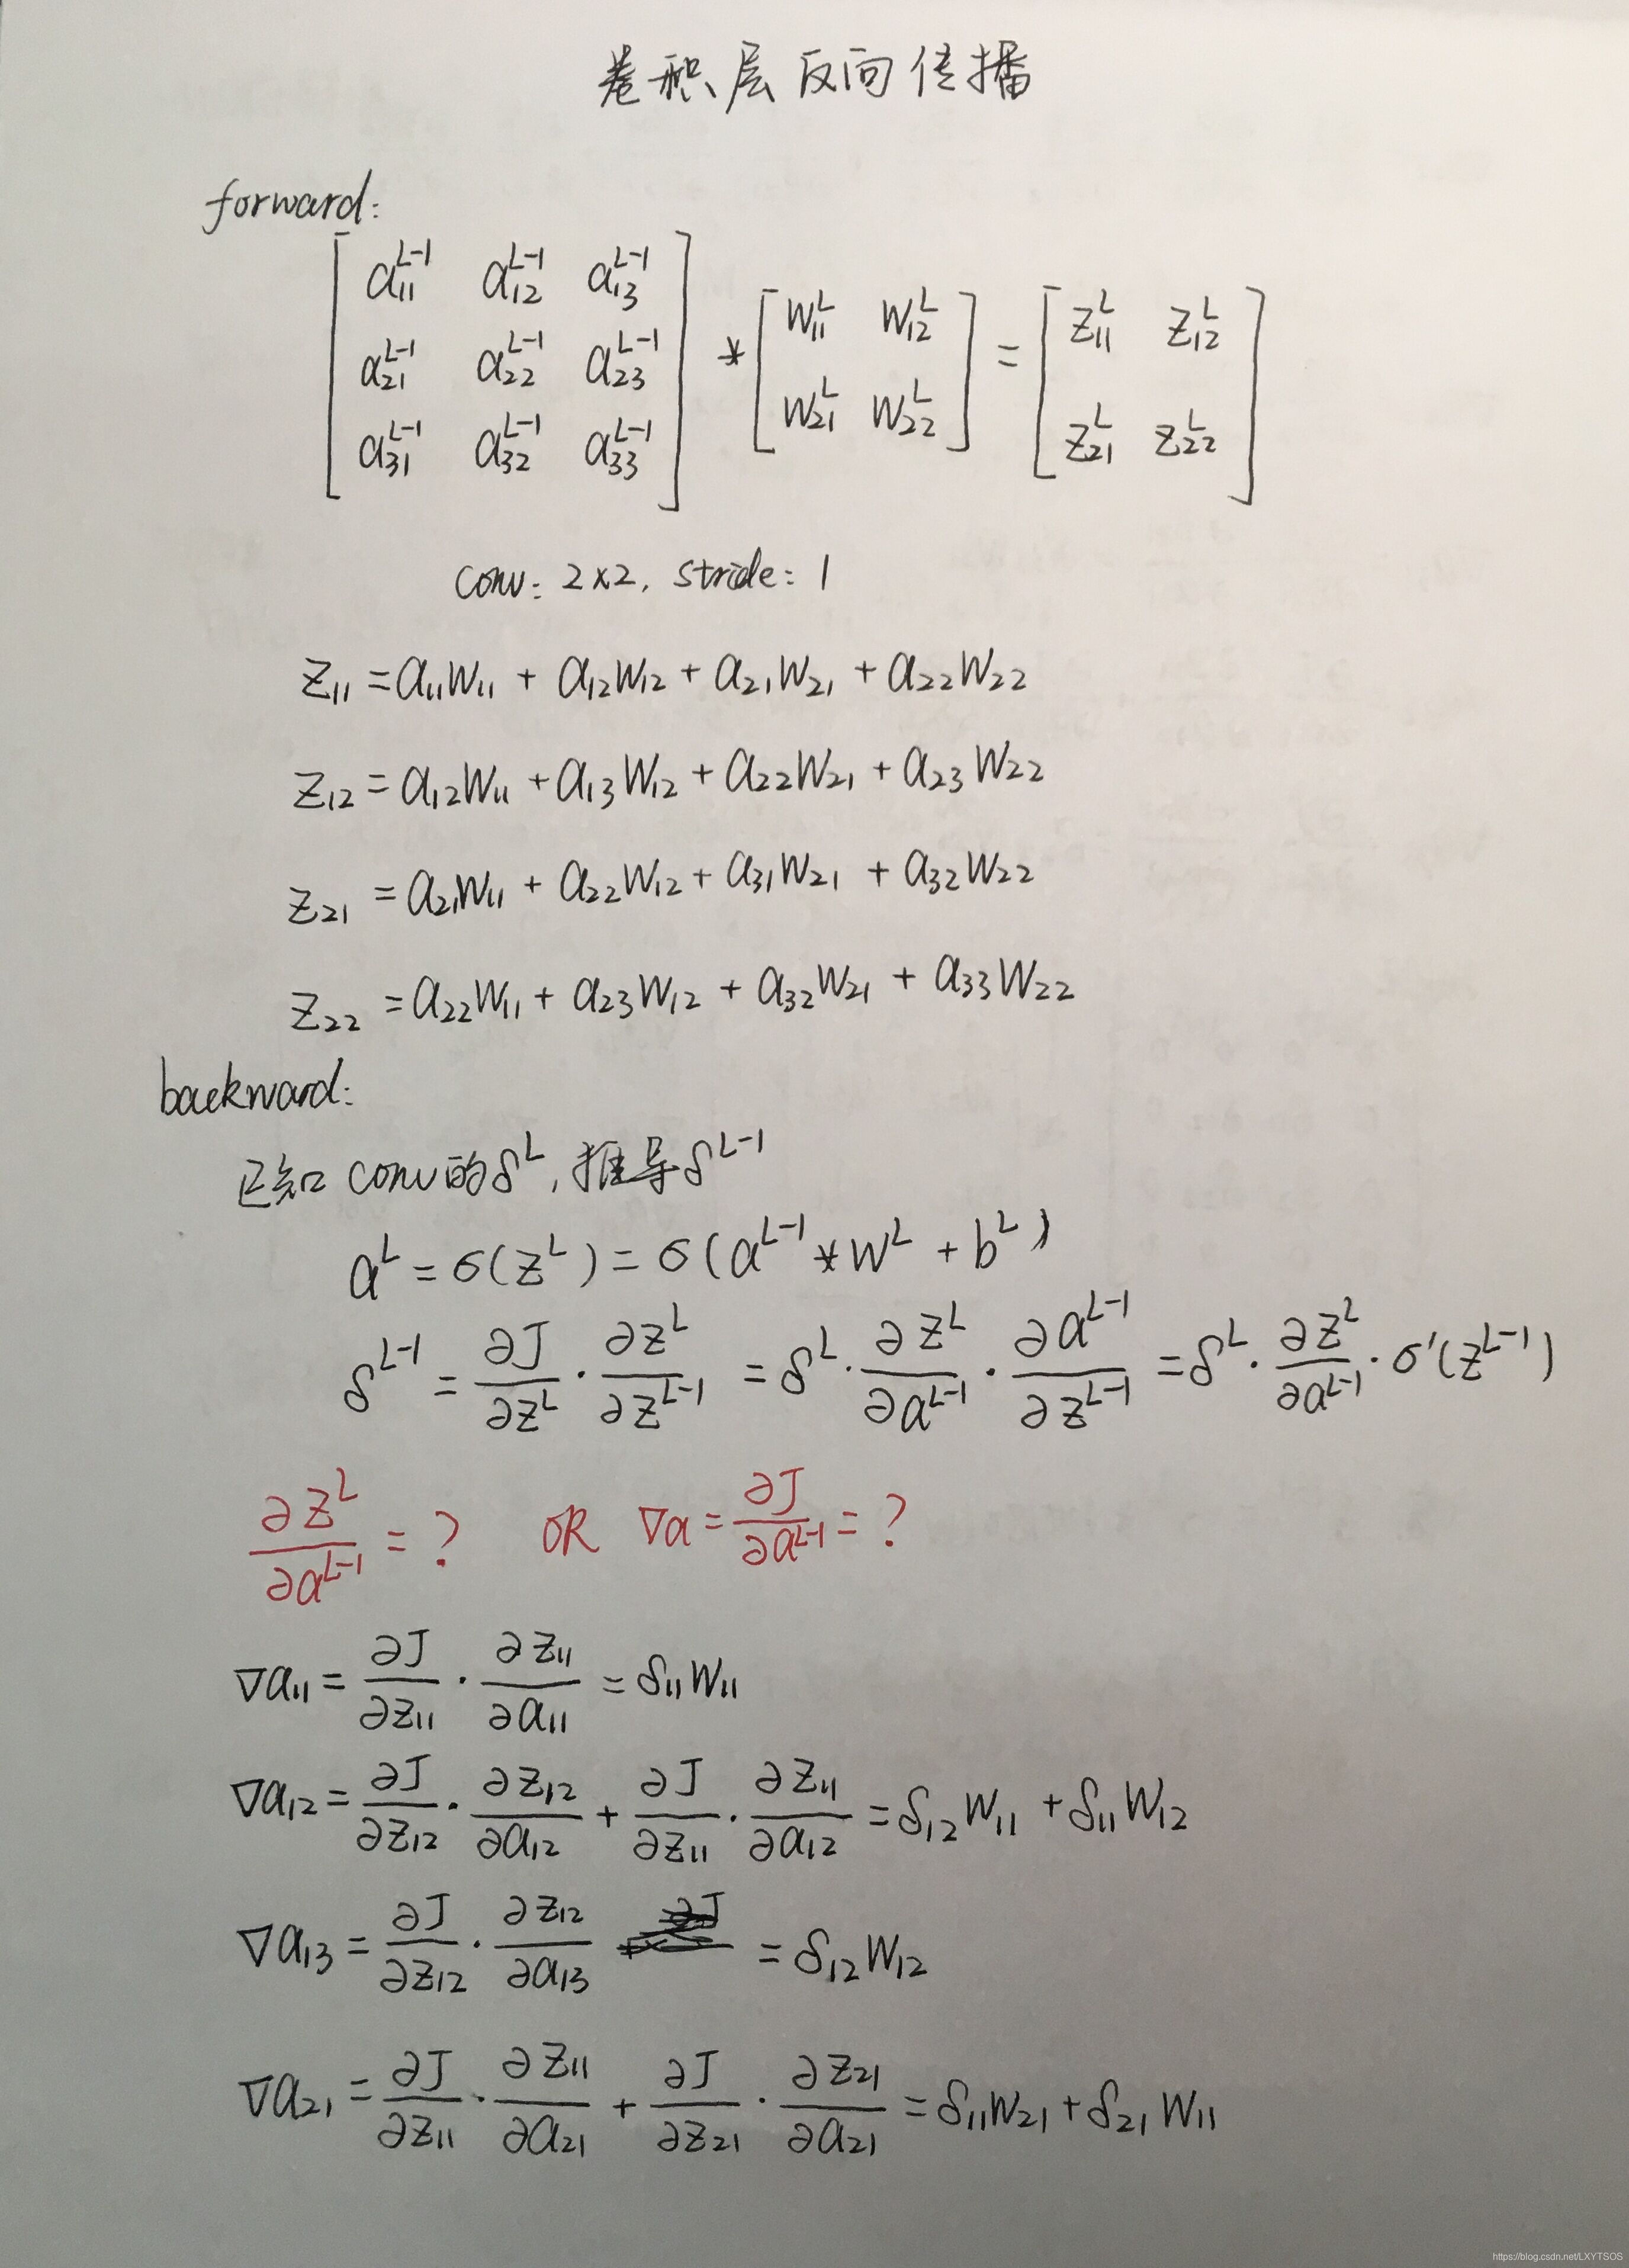 卷积层反向传播
forward:
[ a₁₁^{L-1} a₁₂^{L-1} a₁₃^{L-1} ; a₂₁^{L-1} a₂₂^{L-1} a₂₃^{L-1} ; a₃₁^{L-1} a₃₂^{L-1} a₃₃^{L-1} ] * [ W₁₁^L W₁₂^L ; W₂₁^L W₂₂^L ] = [ z₁₁^L z₁₂^L ; z₂₁^L z₂₂^L ]
conv: 2×2, stride: 1
z₁₁ = a₁₁W₁₁ + a₁₂W₁₂ + a₂₁W₂₁ + a₂₂W₂₂
z₁₂ = a₁₂W₁₁ + a₁₃W₁₂ + a₂₂W₂₁ + a₂₃W₂₂
z₂₁ = a₂₁W₁₁ + a₂₂W₁₂ + a₃₁W₂₁ + a₃₂W₂₂
z₂₂ = a₂₂W₁₁ + a₂₃W₁₂ + a₃₂W₂₁ + a₃₃W₂₂
backward:
已知 conv的δ^L, 推导δ^{L-1}
a^L = σ(z^L) = σ(a^{L-1} * W^L + b^L)
δ^{L-1} = ∂J/∂z^L · ∂z^L/∂z^{L-1} = δ^L · ∂z^L/∂a^{L-1} · ∂a^{L-1}/∂z^{L-1} = δ^L · ∂z^L/∂a^{L-1} · σ'(z^{L-1})
∂z^L/∂a^{L-1} = ? OR ∇a = ∂J/∂a^{L-1} = ?
∇a₁₁ = ∂J/∂z₁₁ · ∂z₁₁/∂a₁₁ = δ₁₁W₁₁
∇a₁₂ = ∂J/∂z₁₂ · ∂z₁₂/∂a₁₂ + ∂J/∂z₁₁ · ∂z₁₁/∂a₁₂ = δ₁₂W₁₁ + δ₁₁W₁₂
∇a₁₃ = ∂J/∂z₁₂ · ∂z₁₂/∂a₁₃ = δ₁₂W₁₂
∇a₂₁ = ∂J/∂z₁₁ · ∂z₁₁/∂a₂₁ + ∂J/∂z₂₁ · ∂z₂₁/∂a₂₁ = δ₁₁W₂₁ + δ₂₁W₁₁
https://blog.csdn.net/LXYTSOS